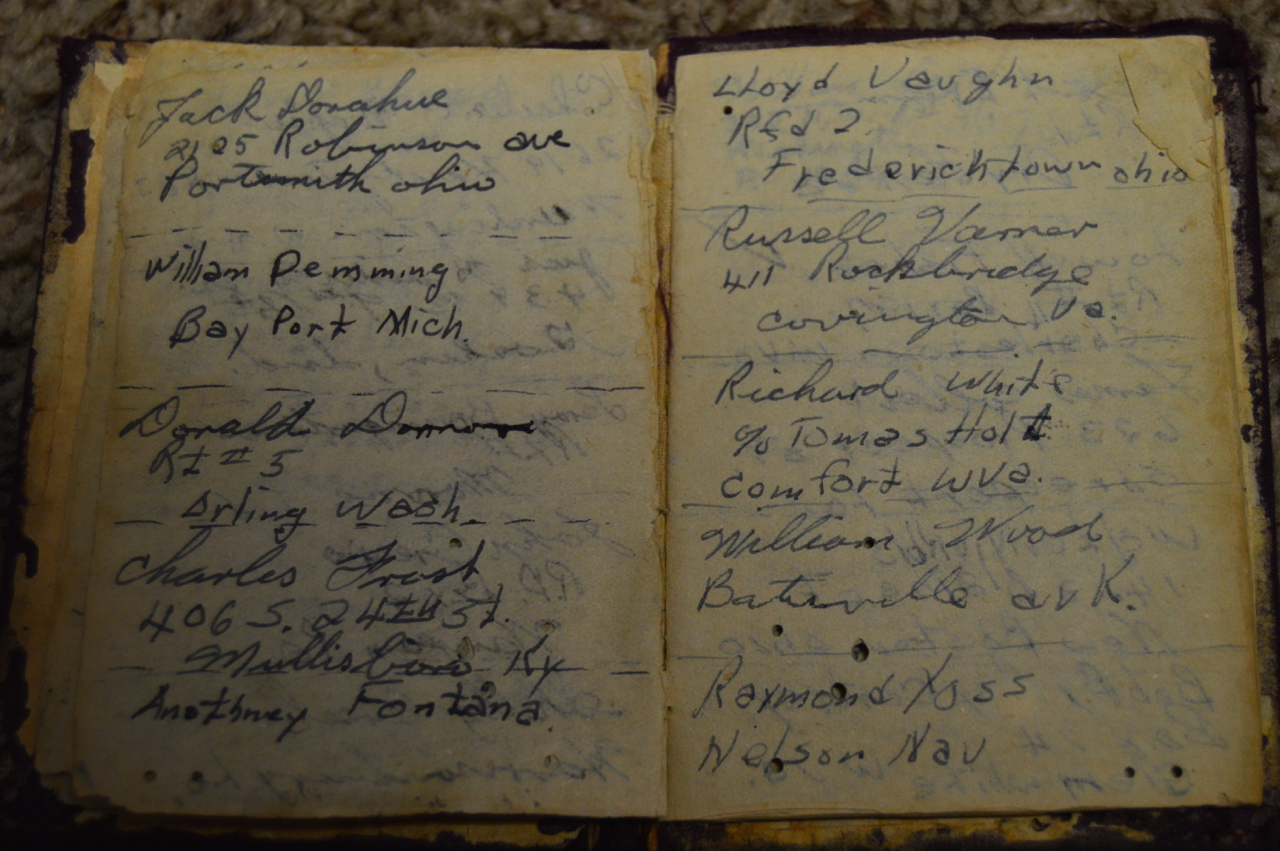 Jack Donahue
2105 Robinson ave
Portsmith ohio
William Demming
Bay Port Mich.
Donald
Rt # 5
Arling Wash.
Charles Frost
406 S. 24TH St.
Ky
Anothney Fontana
Lloyd Vaughn
Rfd 2.
Fredericktown ohio
Russell Varner
411 Rockbridge
covington Va.
Richard White
c/o Tomas Holt
comfort WVa.
William Wood
Batesville ark.
Raymond Yoss
Nelson Nav